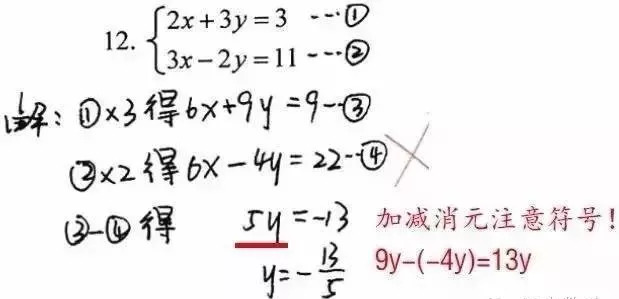 12. { 2x+3y=3 ---①
3x-2y=11 ---②
解: ①×3得6x+9y=9--③
②×2得6x-4y=22--④
③-④得 5y=-13 加减消元注意符号!
y=-13/5 9y-(-4y)=13y